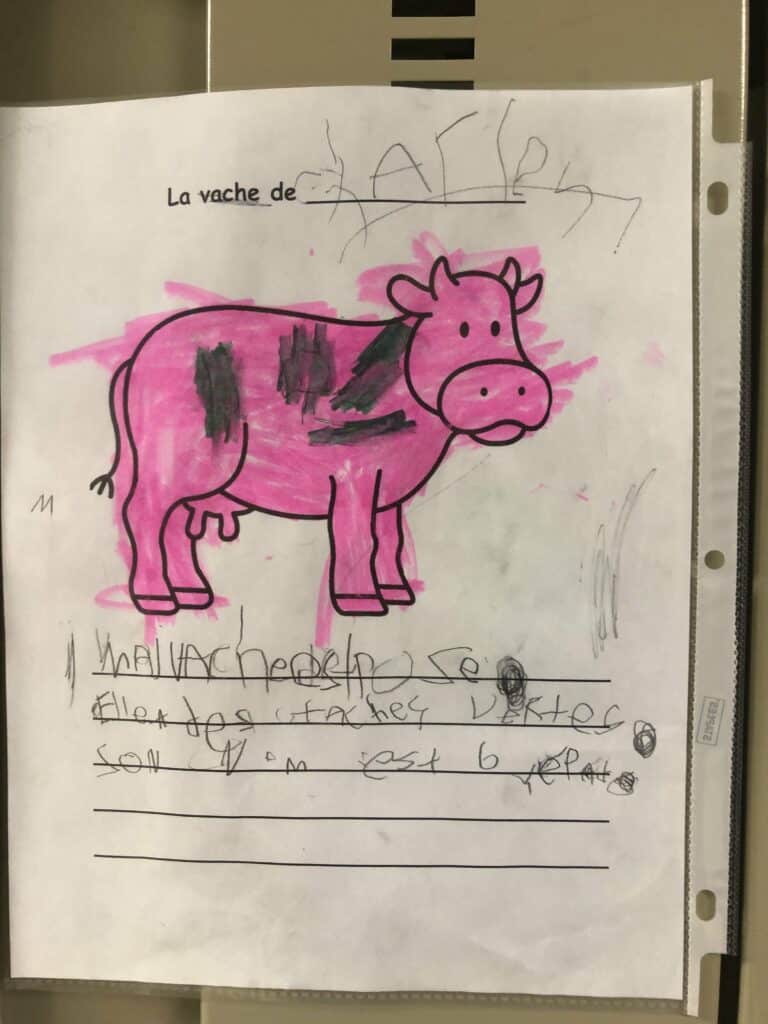 La vache de chArley
MA VAche est rose.
Elle a des taches vertes.
SON Nom est